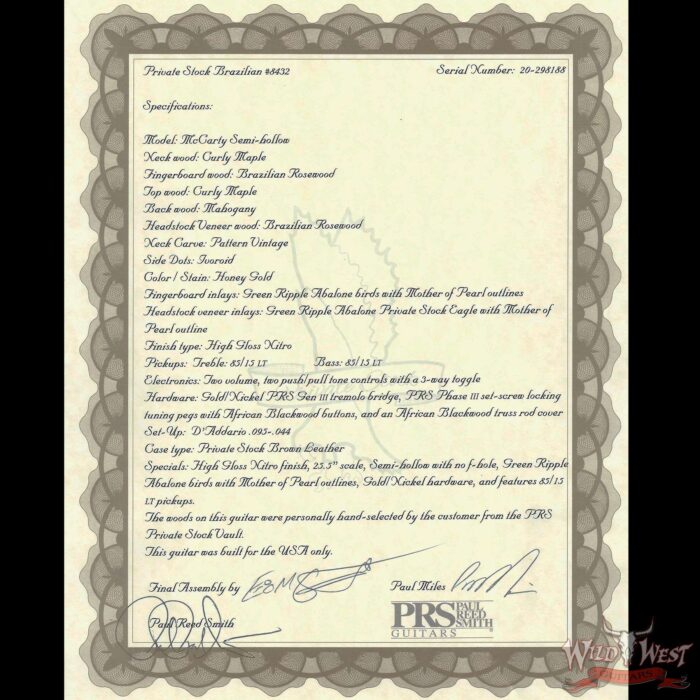 Private Stock Brazilian #8432 Serial Number: 20-298188
Specifications:
Model: McCarty Semi-hollow
Neck wood: Curly Maple
Fingerboard wood: Brazilian Rosewood
Top wood: Curly Maple
Back wood: Mahogany
Headstock Veneer wood: Brazilian Rosewood
Neck Carve: Pattern Vintage
Side Dots: Ivoroid
Color / Stain: Honey Gold
Fingerboard inlays: Green Ripple Abalone birds with Mother of Pearl outlines
Headstock veneer inlays: Green Ripple Abalone Private Stock Eagle with Mother of
Pearl outline
Finish type: High Gloss Nitro
Pickups: Treble: 85/15 LT Bass: 85/15 LT
Electronics: Two volume, two push/pull tone controls with a 3-way toggle
Hardware: Gold/Nickel PRS Gen III tremolo bridge, PRS Phase III set-screw locking
tuning pegs with African Blackwood buttons, and an African Blackwood truss rod cover
Set-Up: D'Addario .095-.044
Case type: Private Stock Brown Leather
Specials: High Gloss Nitro finish, 25.5" scale, Semi-hollow with no f-hole, Green Ripple
Abalone birds with Mother of Pearl outlines, Gold/Nickel hardware, and features 85/15
LT pickups.
The woods on this guitar were personally hand-selected by the customer from the PRS
Private Stock Vault.
This guitar was built for the USA only.
Final Assembly by
Paul Miles
Paul Reed Smith
PRS PAUL REED SMITH
GUITARS
WILD WEST
GUITARS